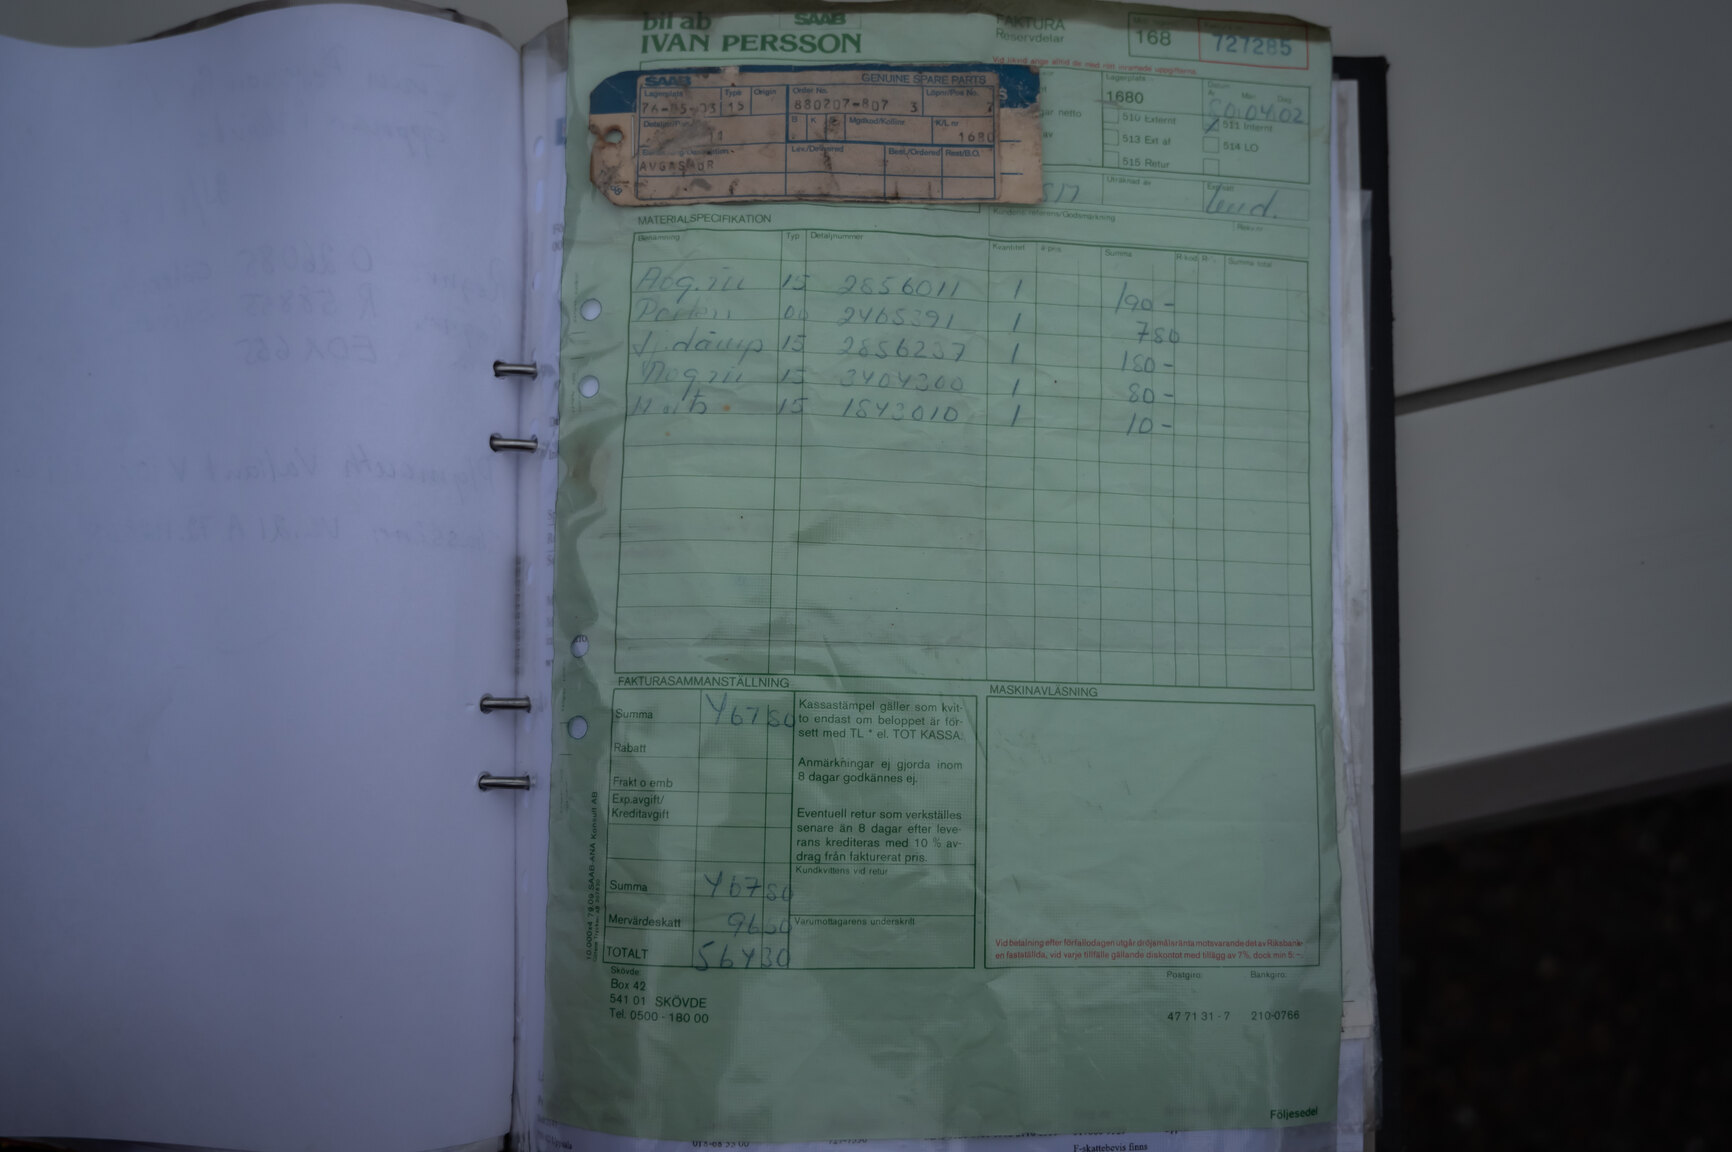 bil ab SAAB
IVAN PERSSON
FAKTURA
Reservdelar
168
727285
Vid likvid ange alltid de med rött inramade uppgifterna
SAAB GENUINE SPARE PARTS
Lagerplats Type Origin Order No. Löpnr/Pos No.
15 880207-807 3 7
B K Mgdkod/Kollinr K/L nr
1680
Lev./Delivered Best./Ordered Rest/B.O.
AVGASRÖR
Lagerplats
1680
Datum
År Mån Dag
80 04 02
netto
510 Externt
511 Internt
av
513 Ext af
514 LO
515 Retur
517
Uträknad av
Exp/sält
Kundens referens/Godsmärkning
Rekv.nr
MATERIALSPECIFIKATION
Benämning Typ Detaljnummer Kvantitet à-pris Summa R-kod R- Summa total
Avg.rör 15 2856011 1 190-
Packn 00 2465391 1 7 50
Lj.dämp 15 2856237 1 180-
Avg.rör 15 3404300 1 80-
15 1843010 1 10-
FAKTURASAMMANSTÄLLNING
Summa 467 50
Rabatt
Frakt o emb
Exp.avgift/
Kreditavgift
Summa 467 50
Mervärdeskatt 96 80
TOTALT 564 30
Kassastämpel gäller som kvit-
to endast om beloppet är för-
sett med TL * el. TOT KASSA.
Anmärkningar ej gjorda inom
8 dagar godkännes ej.
Eventuell retur som verkställes
senare än 8 dagar efter leve-
rans krediteras med 10 % av-
drag från fakturerat pris.
Kundkvittens vid retur
Varumottagarens underskrift
MASKINAVLÄSNING
Vid betalning efter förfallodagen utgår dröjsmålsränta motsvarande det av Riksbank-
en fastställda, vid varje tillfälle gällande diskontot med tillägg av 7%, dock min 5:-.
10.000x4 79.09 SAAB-ANA Konsult AB
Skövde:
Box 42
541 01 SKÖVDE
Tel. 0500 - 180 00
Postgiro: Bankgiro:
47 71 31 - 7 210-0766
Följesedel
F-skattebevis finns